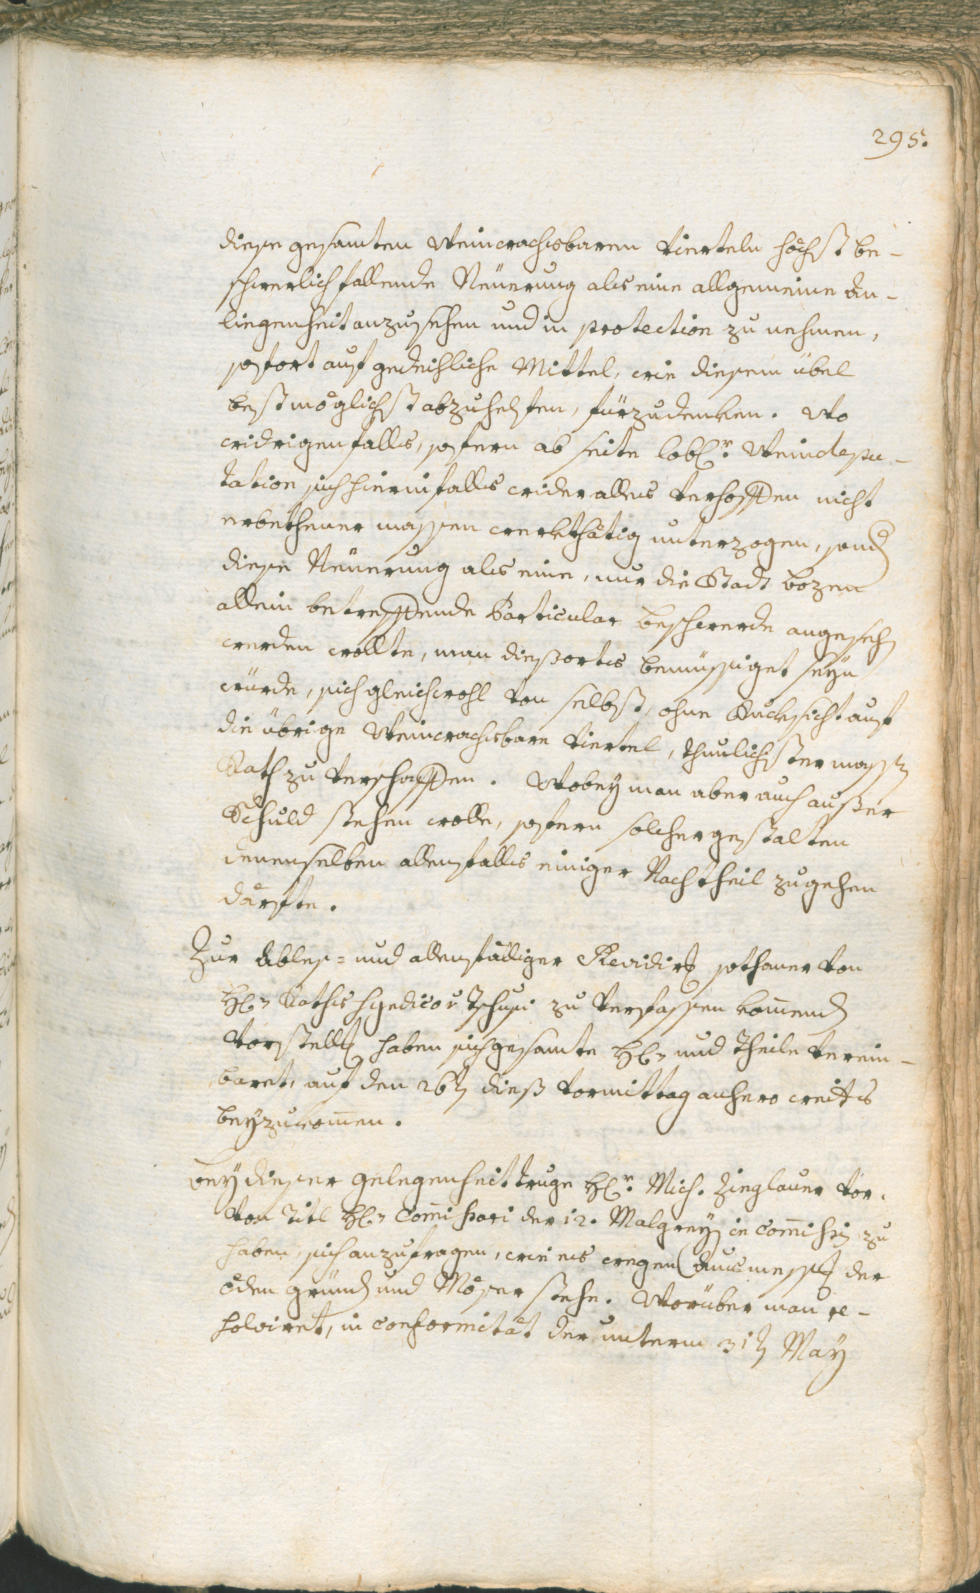 295.
diese gesamten Weinwachsbaren Vierteln höchst be-
schwerlich fallende Neüerung als eine allgemeine An-
liegenheit anzusehen und in protection zu nehmen,
sofort auf gedeihliche Mittel, wie diesem übel
bestmöglichst abzuhelfen, fürzudenken. Wo
widrigenfalls, sofern ab seite lobl:r Weindepu-
tation sich hierinfalls wider alles Verhoffen nicht
erbethener massen werkthätig unterzogen, sond
diese Neüerung als eine, nur die Stadt bozen
allein betreffende Particular beschwerde angeseh
werden wollte, man diesorts bemüssiget seyn
würde, sich gleichwohl von selbst, ohne Rucksicht auf
die übrige Weinwachsbare Viertel, thunlichstermass
Rath zu verschaffen. Wobey man aber auch ausser
Schuld stehen wolle, sofern solchergestalten
denenselben allenfalls einiger Nachtheil zugehen
därfte.
Zur Ables- und allenfälliger Revidirg sothaner von
H: Raths Syndico v: Tschusi zu verfassen komend
Vorstellg haben sich gesamte H: und Theile verein-
baret, auf den 26t dieß vormittag anhero weiters
beyzukomen.
Bey dieser gelegenheit truge H:r Mich. Zieglauer vor.
von Titl H: Comissari der 12. Malgrey in Comissis zu
haben, sich anzufragen, wie es wegen Ausmessg der
öden gründ und Möser stehe. Worüber man re-
solviret, in conformität der unterm 31t May